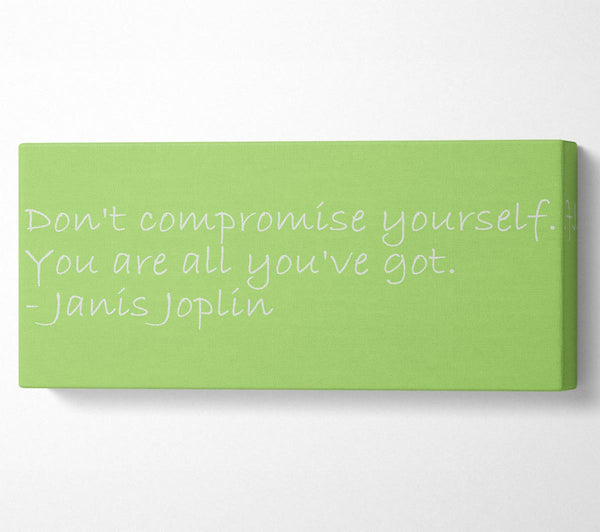 Don't compromise yourself.
You are all you've got.
-Janis Joplin